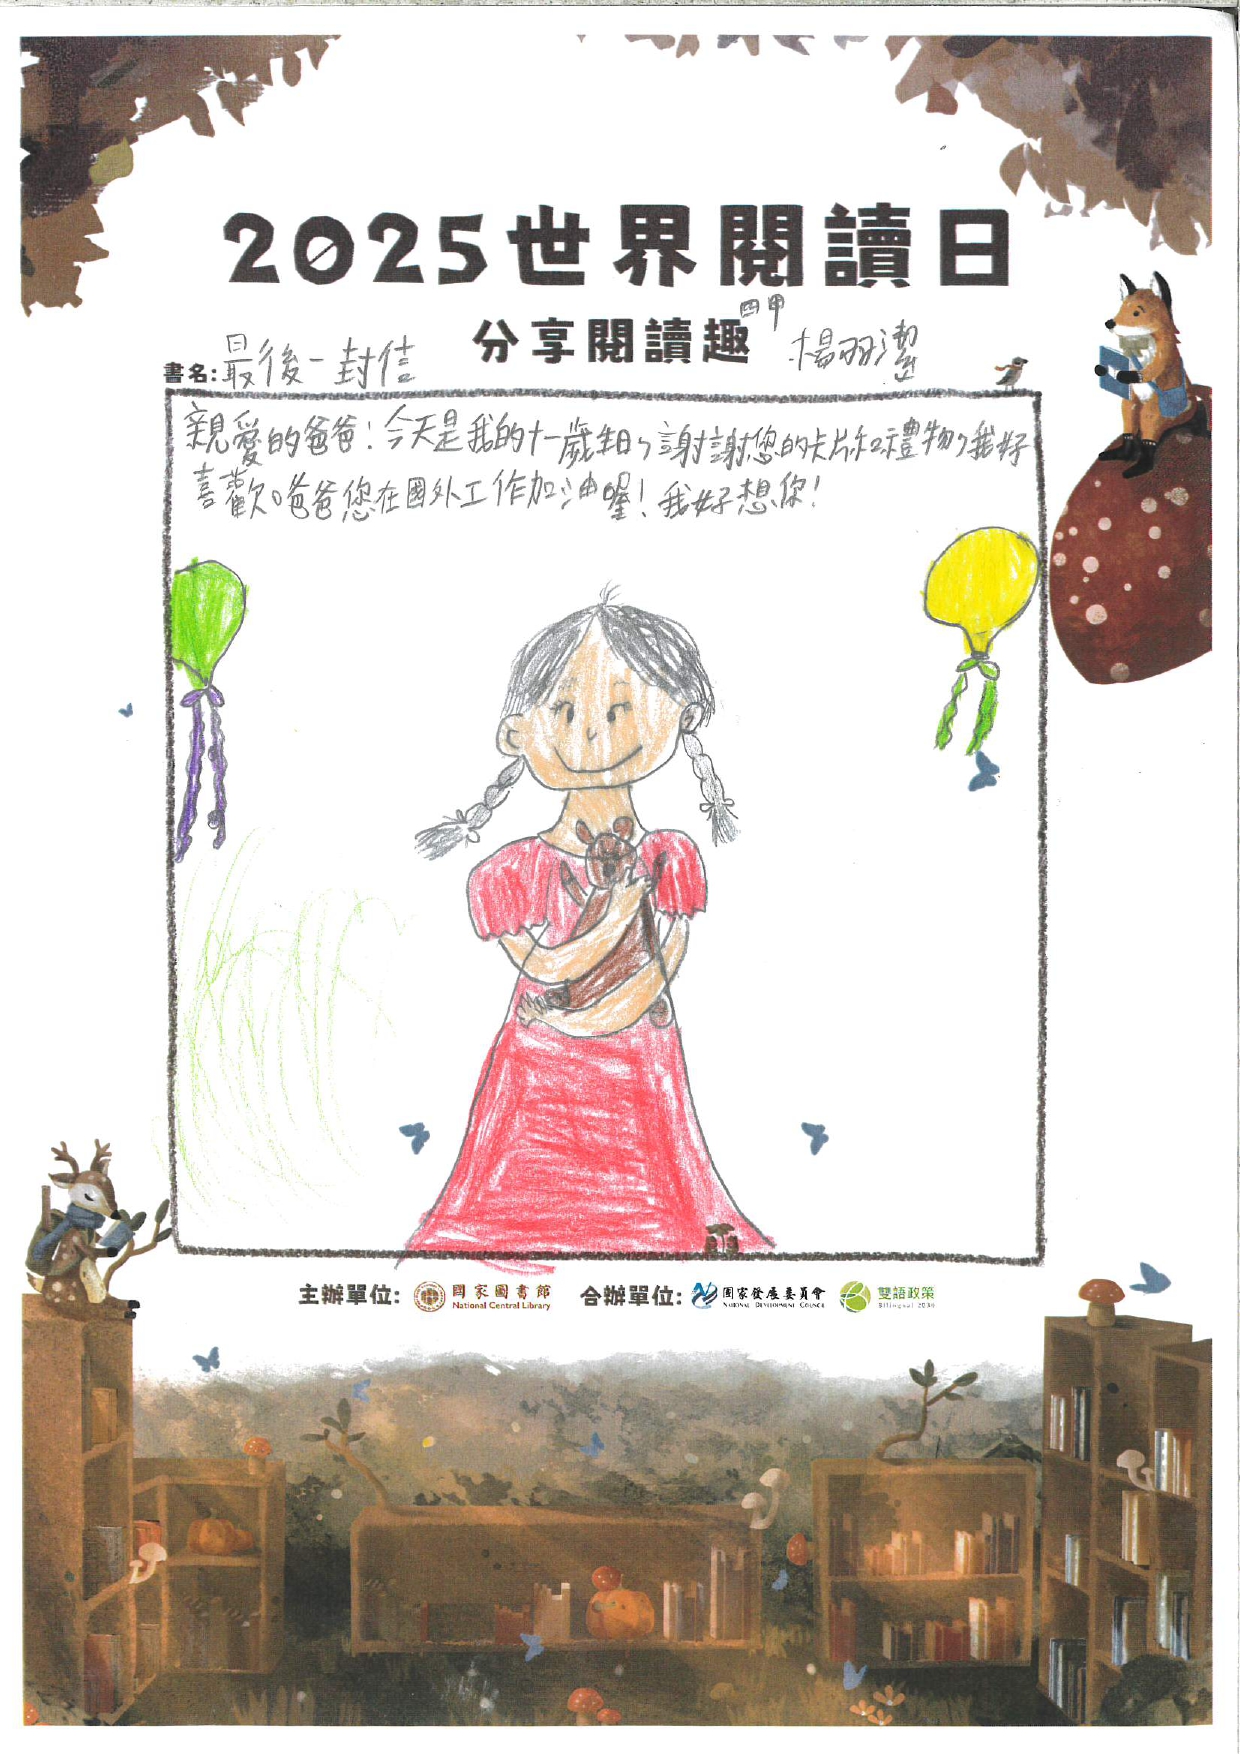 2025世界閱讀日
分享閱讀趣
四甲 楊羽潔
書名:最後一封信
親愛的爸爸!今天是我的十一歲生日,謝謝您的卡片和禮物,我好
喜歡。爸爸您在國外工作加油喔!我好想你!
主辦單位: 國家圖書館 合辦單位: 國家發展委員會 雙語政策
National Central Library NATIONAL DEVELOPMENT COUNCIL Bilingual 2030